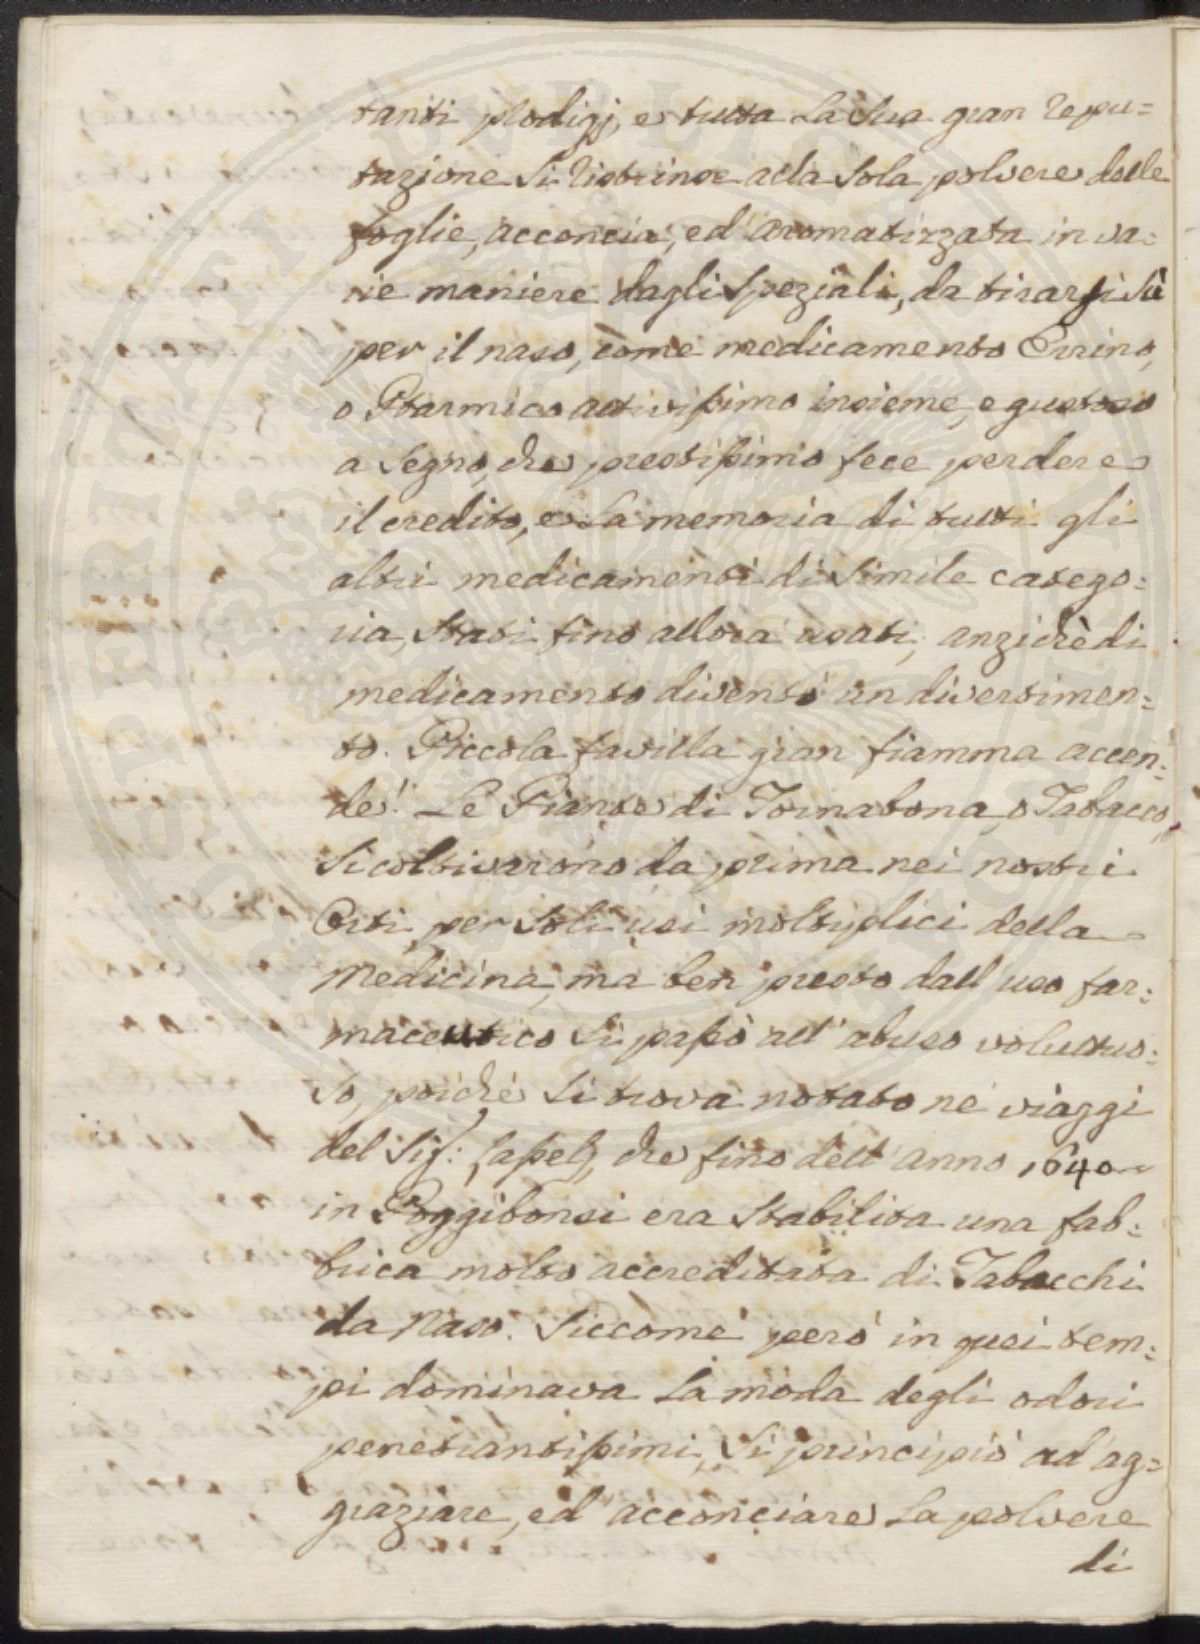 tanti prodigj, e tutta La Sua gran repu=
tazione Si ristrinse alla Sola polvere delle
foglie, acconcia, ed' aromatizzata in va=
rie maniere dagli Speziali, da tirarsi Sù
per il naso, come medicamento Errino,
o Ptarmico attivissimo insieme, e gustoso
a Segno, che prestissimo fece perdere
il credito, e La memoria di tutti gli
altri medicamenti di Simile catego=
ria, Stati fino allora usati, anzichè di
medicamento diventò un divertimen=
to. Piccola favilla gran fiamma accen=
de! Le Piante di Tornabona, o Tabacco,
Si coltivarono da prima nei nostri
Orti per Soli usi moltiplici della
Medicina, ma ben presto dall' uso far=
maceutico Si passò all' abuso voluttuo=
So, poichè Si trova notato ne viaggi
del Sig: che fino dell' anno 1640
in Poggibonsi era Stabilita una fab=
brica molto accreditata di Tabacchi
da Naso. Siccome però in quei tem=
pi dominava La moda degli odori
penetrantissimi, Si principiò ad ag=
graziare, ed' acconciare La polvere
di